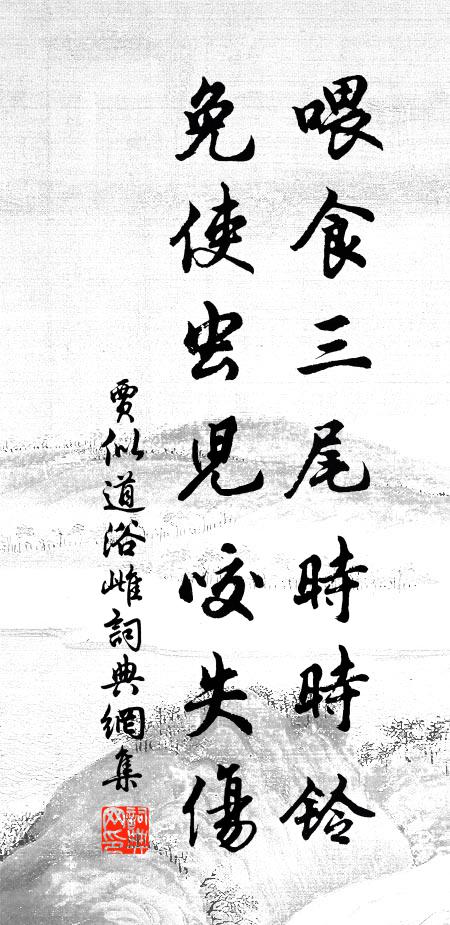 喂食三尾時時鈴
免使虫兒咬失傷
賈似道浴雌詞典網集
詞典網印